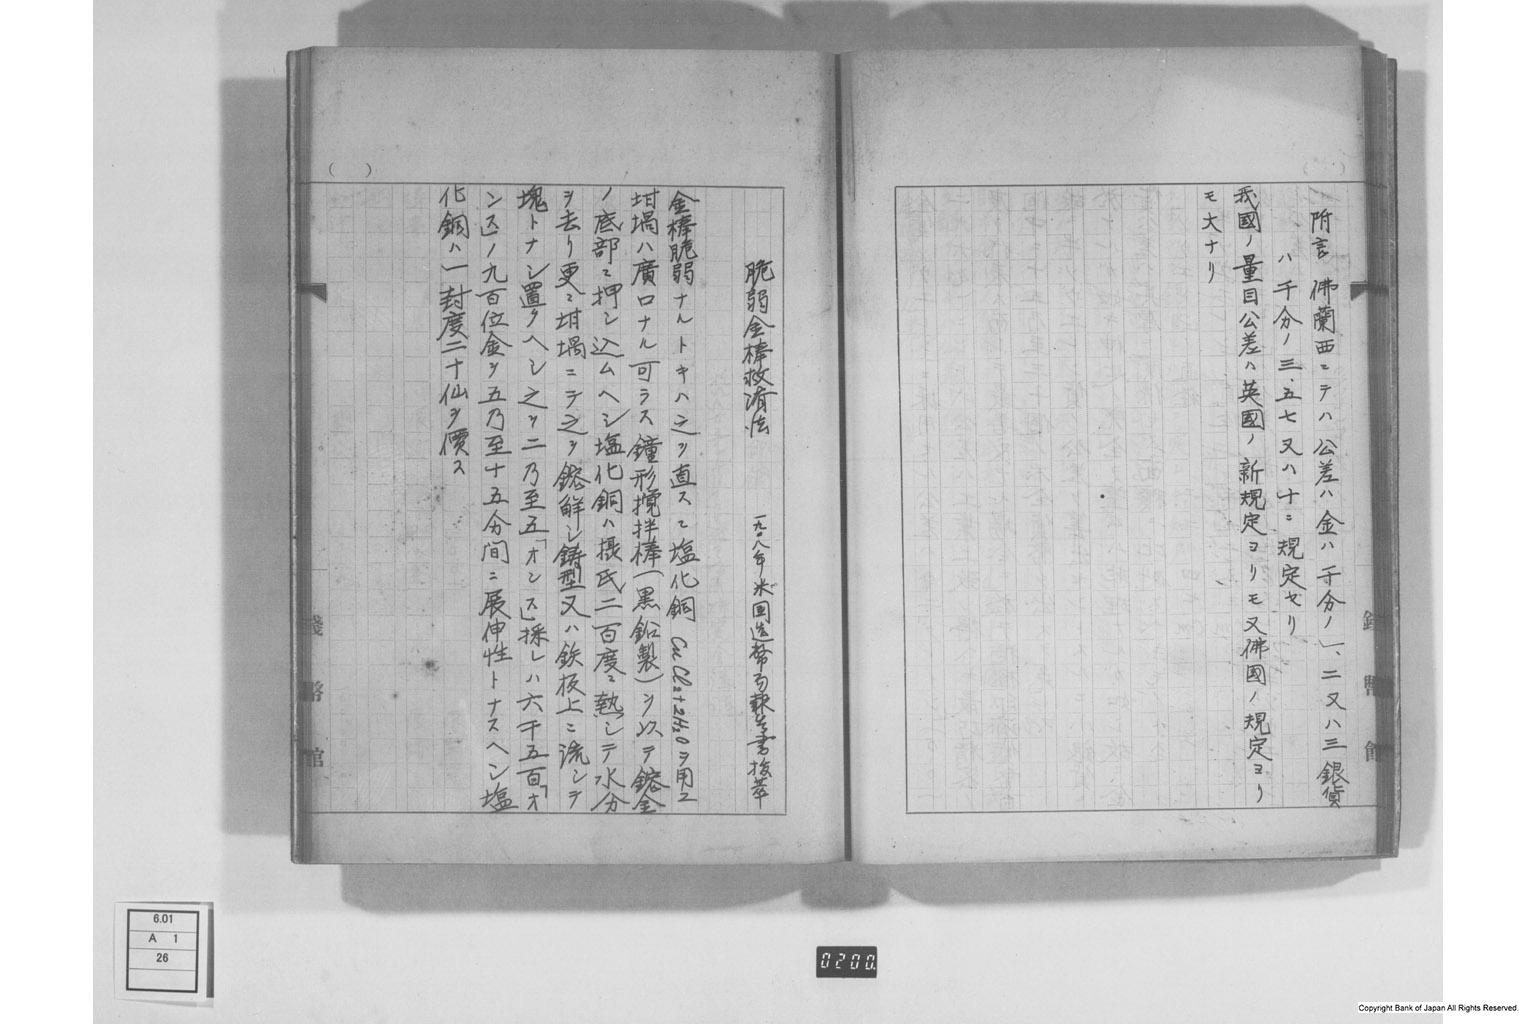 附言 佛蘭西ニテハ公差ハ金ハ千分ノ一、二又ハ三銀貨
ハ千分ノ三、五七又ハ十ニ規定セリ
我國ノ量目公差ハ英國ノ新規定ヨリモ又佛國ノ規定ヨリ
モ大ナリ
脆弱金棒救済法 一九〇八年米国造幣局報告書抜萃
金棒脆弱ナルトキハ之ヲ直スニ塩化銅 CuCl2+2H2Oヲ用ユ
坩堝ハ廣口ナル可ラス鐘形攪拌棒(黒鉛製)ヲ以テ鎔金
ノ底部ニ押シ込ムヘシ塩化銅ハ攝氏二百度ニ熱シテ水分
ヲ去リ更ニ坩堝ニテ之ヲ鎔解シ鋳型又ハ鉄板上ニ流シテ
塊トナシ置クヘシ之ヲ二乃至五「オンス」採レハ六千五百「オ
ンス」ノ九百位金ヲ五乃至十五分間ニ展伸性トナスヘシ塩
化銅ハ一封度二十仙ヲ價ス
( )
錢幣館
錢幣館
6.01
A 1
26
0200
Copyright Bank of Japan All Rights Reserved.